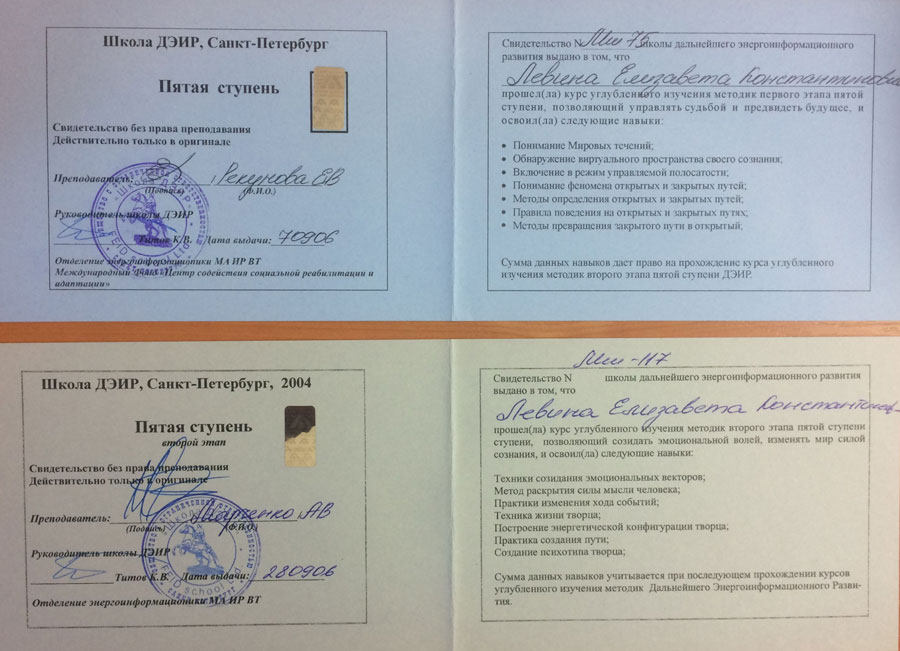 Школа ДЭИР, Санкт-Петербург
Пятая ступень
Свидетельство без права преподавания
Действительно только в оригинале
Преподаватель: Рекунова ЕВ
(Подпись) (Ф.И.О.)
Руководитель школы ДЭИР
Титов К.В. Дата выдачи: 70906
Отделение энергоинформационики МА ИР ВТ
Международный «Центр содействия социальной реабилитации и
адаптации»
Свидетельство N Мш 75 школы дальнейшего энергоинформационного
развития выдано в том, что
Левина Елизавета Константиновна
прошел(ла) курс углубленного изучения методик первого этапа пятой
ступени, позволяющий управлять судьбой и предвидеть будущее, и
освоил(ла) следующие навыки:
• Понимание Мировых течений;
• Обнаружение виртуального пространства своего сознания;
• Включение в режим управляемой полосатости;
• Понимание феномена открытых и закрытых путей;
• Методы определения открытых и закрытых путей;
• Правила поведения на открытых и закрытых путях;
• Методы превращения закрытого пути в открытый;
Сумма данных навыков дает право на прохождение курса углубленного
изучения методик второго этапа пятой ступени ДЭИР.
Школа ДЭИР, Санкт-Петербург, 2004
Пятая ступень
второй этап
Свидетельство без права преподавания
Действительно только в оригинале
Преподаватель: АВ
(Подпись) (Ф.И.О)
Руководитель школы ДЭИР
Титов К.В. Дата выдачи: 280906
FEID school Ltd
Отделение энергоинформационики МА ИР ВТ
Мш-117
Свидетельство N школы дальнейшего энергоинформационного развития
выдано в том, что
Левина Елизавета
прошел(ла) курс углубленного изучения методик второго этапа пятой ступени
ступени, позволяющий созидать эмоциональной волей, изменять мир силой
сознания, и освоил(ла) следующие навыки:
Техники созидания эмоциональных векторов;
Метод раскрытия силы мысли человека;
Практики изменения хода событий;
Техника жизни творца;
Построение энергетической конфигурации творца;
Практика создания пути;
Создание психотипа творца;
Сумма данных навыков учитывается при последующем прохождении курсов
углубленного изучения методик Дальнейшего Энергоинформационного Разви-
тия.